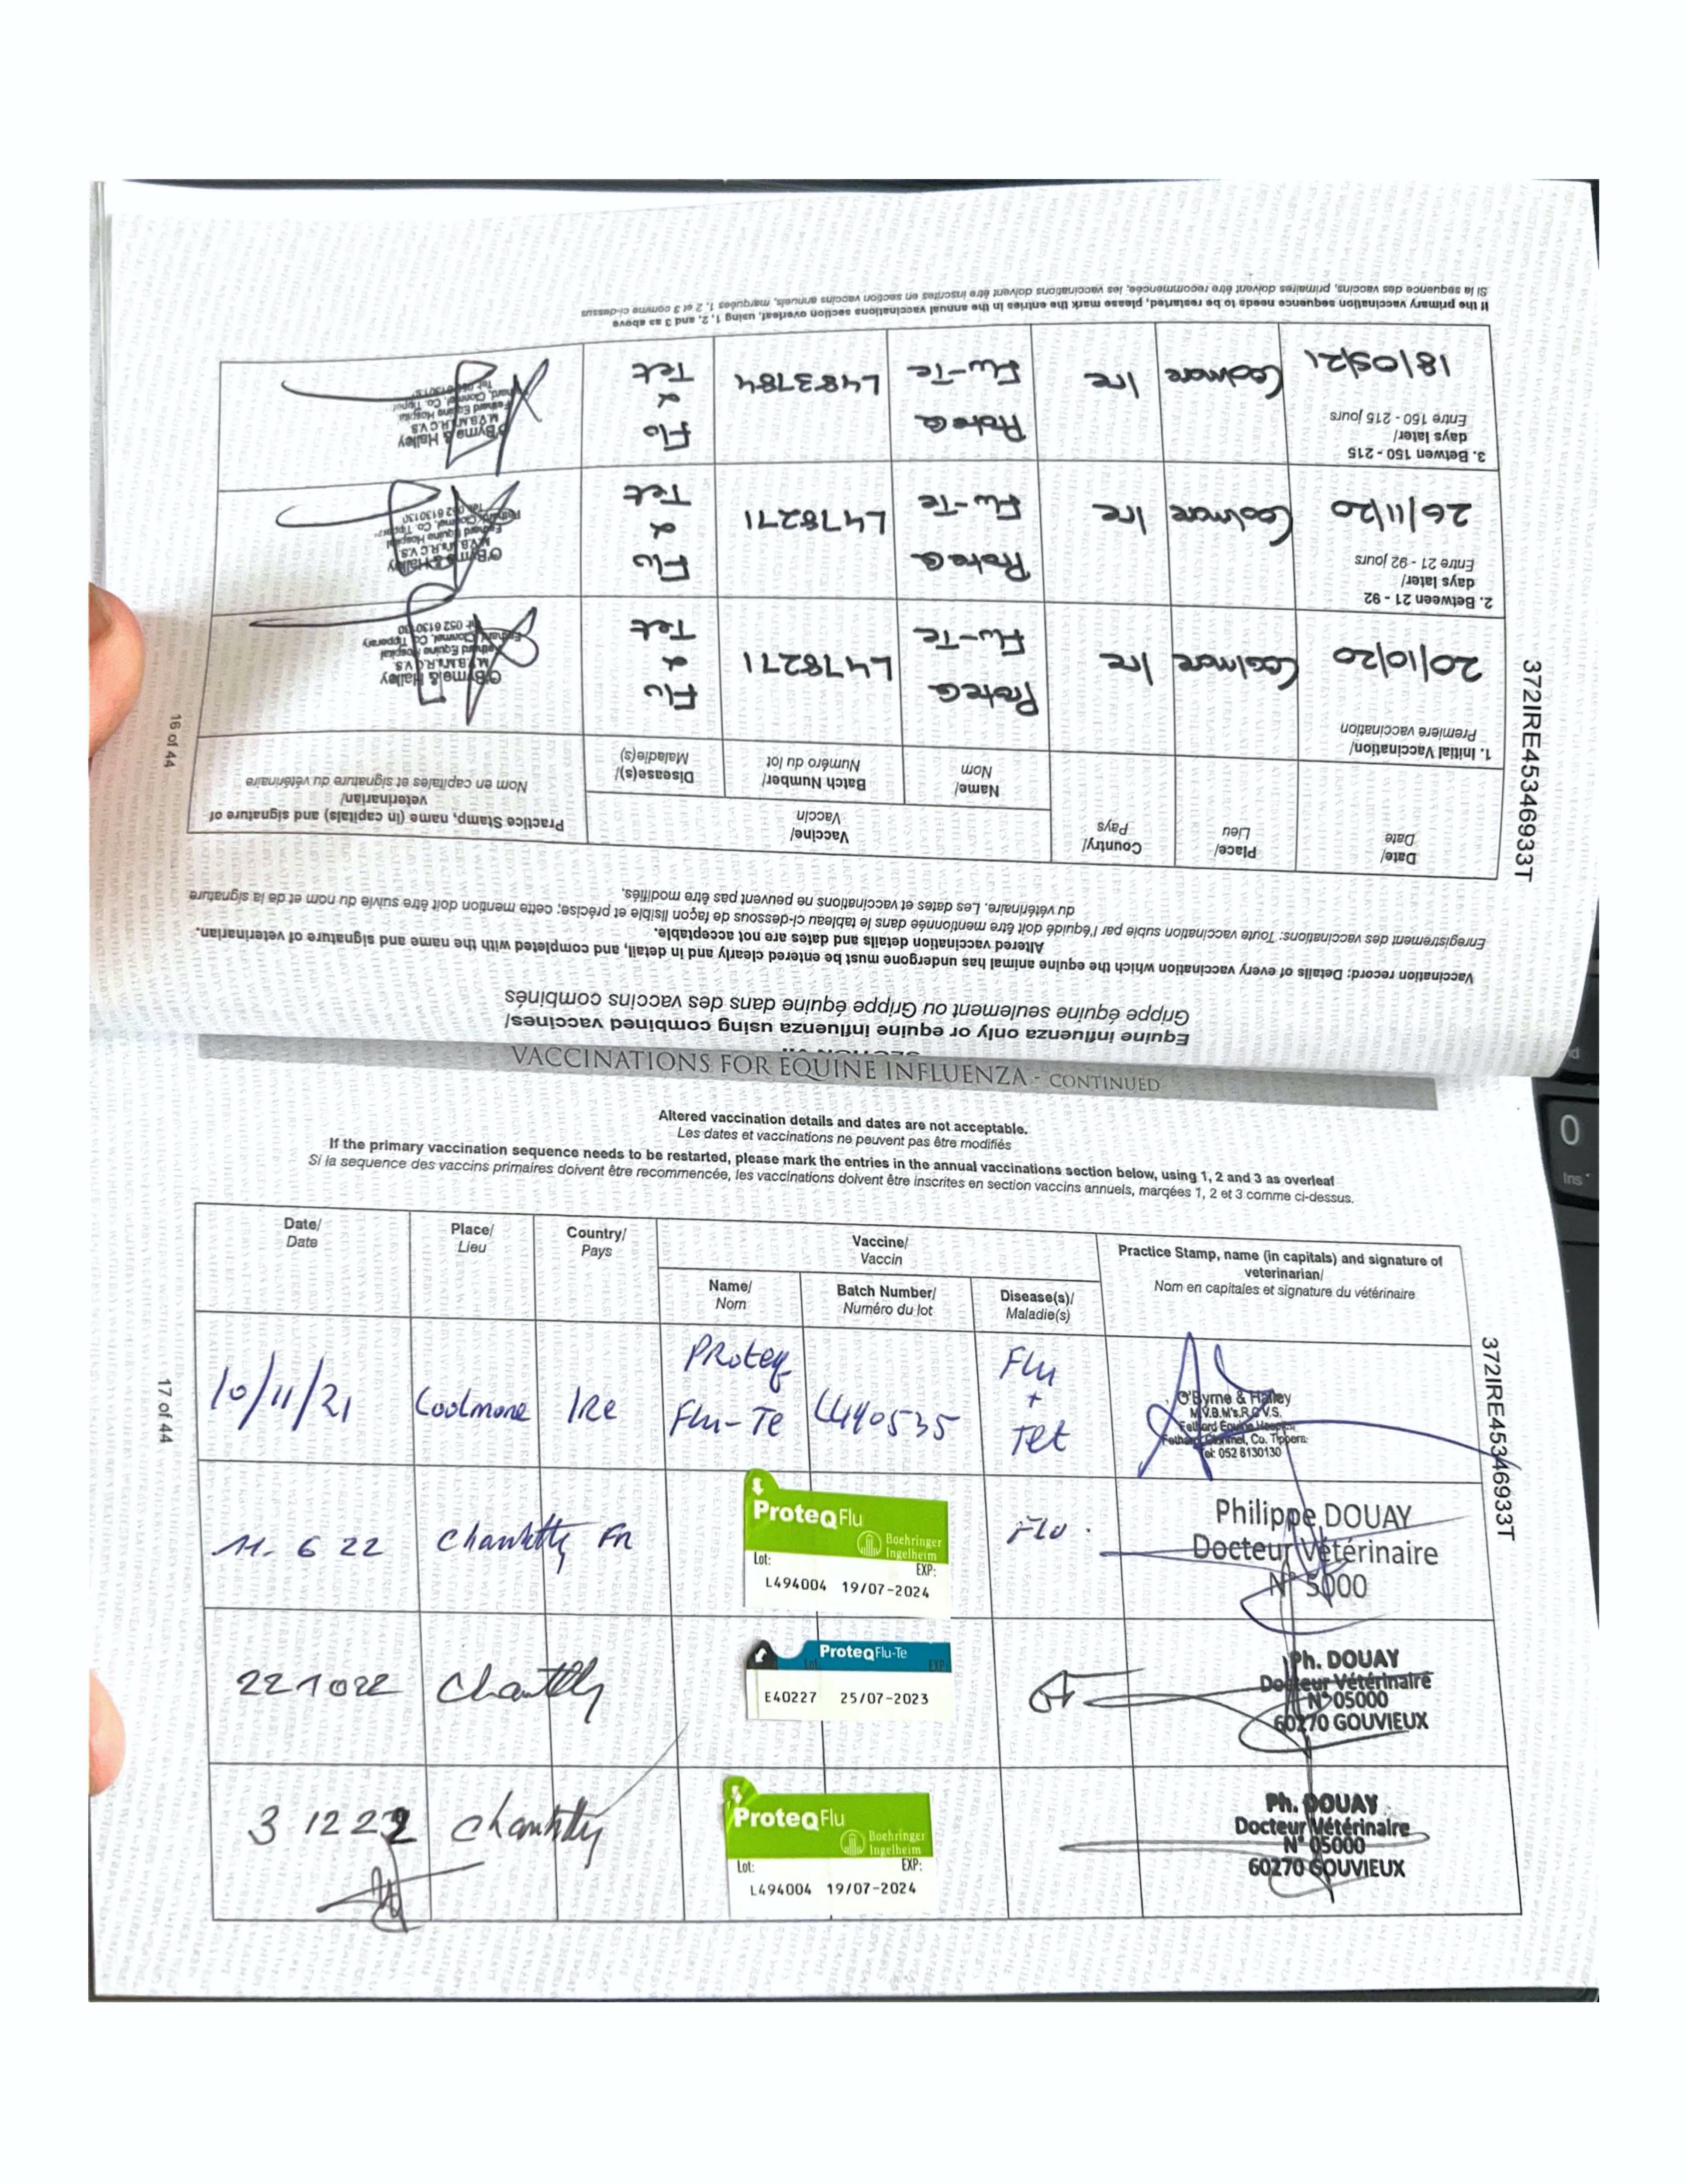 Equine influenza only or equine influenza using combined vaccines/
Grippe équine seulement ou Grippe équine dans des vaccins combinés
Vaccination record: Details of every vaccination which the equine animal has undergone must be entered clearly and in detail, and completed with the name and signature of veterinarian.
Altered vaccination details and dates are not acceptable.
Enregistrement des vaccinations: Toute vaccination subie par l'équidé doit être mentionnée dans le tableau ci-dessous de façon lisible et précise; cette mention doit être suivie du nom et de la signature
du vétérinaire. Les dates et vaccinations ne peuvent pas être modifiés.
Date/
Date
Place/
Lieu
Country/
Pays
Vaccine/
Vaccin
Name/
Nom
Batch Number/
Numéro du lot
Disease(s)/
Maladie(s)
Practice Stamp, name (in capitals) and signature of
veterinarian/
Nom en capitales et signature du vétérinaire
1. Initial Vaccination/
Premiere vaccination
20/10/20
Coolmore
Ire
ProteQ
Flu-Te
L478271
Flu
&
Tet
O'Byrne & Halley
M.V.B.M's.R.C.V.S.
Fethard Equine Hospital
Fethard, Clonmel, Co. Tipperary
Tel: 052 6130130
2. Between 21 - 92
days later/
Entre 21 - 92 jours
26/11/20
Coolmore
Ire
ProteQ
Flu-Te
L478271
Flu
&
Tet
O'Byrne & Halley
M.V.B.M's.R.C.V.S.
Fethard Equine Hospital
Fethard, Clonmel, Co. Tipper
Tel: 052 6130130
3. Betwen 150 - 215
days later/
Entre 150 - 215 jours
18/05/21
Coolmore
Ire
ProteQ
Flu-Te
L483784
Flu
&
Tet
O'Byrne & Halley
M.V.B.M's.R.C.V.S
Fethard Equine Hospital
Fethard, Clonmel, Co. Tipper
If the primary vaccination sequence needs to be restarted, please mark the entries in the annual vaccinations section overleaf, using 1, 2, and 3 as above
Si la sequence des vaccins, primaires doivent être recommencée, les vaccinations doivent être inscrites en section vaccins annuels, marquées 1, 2 et 3 comme ci-dessus
16 of 44
372IRE45346933T
VACCINATIONS FOR EQUINE INFLUENZA - CONTINUED
Altered vaccination details and dates are not acceptable.
Les dates et vaccinations ne peuvent pas être modifiés
If the primary vaccination sequence needs to be restarted, please mark the entries in the annual vaccinations section below, using 1, 2 and 3 as overleaf
Si la sequence des vaccins primaires doivent être recommencée, les vaccinations doivent être inscrites en section vaccins annuels, marqées 1, 2 et 3 comme ci-dessus.
Date/
Date
Place/
Lieu
Country/
Pays
Vaccine/
Vaccin
Name/
Nom
Batch Number/
Numéro du lot
Disease(s)/
Maladie(s)
Practice Stamp, name (in capitals) and signature of
veterinarian/
Nom en capitales et signature du vétérinaire
10/11/21
Coolmore
IRe
PRoteq
Flu-Te
L490535
Flu
+
Tet
O'Byrne & Halley
M.V.B.M's.R.C.V.S.
Fethard Equine Hospital
Fethard, Clonmel, Co. Tippera
Tel: 052 6130130
11. 6 22
Chantilly
Fn
ProteqFlu
Boehringer
Ingelheim
Lot:
EXP:
L494004 19/07-2024
Flu.
Philippe DOUAY
Docteur Vétérinaire
N° 5000
22 10 22
Chantilly
ProteqFlu-Te
Lot
EXP
E40227 25/07-2023
Ph. DOUAY
Docteur Vétérinaire
N° 05000
60270 GOUVIEUX
3 12 22
Chantilly
ProteqFlu
Boehringer
Ingelheim
Lot:
EXP:
L494004 19/07-2024
Ph. DOUAY
Docteur Vétérinaire
N° 05000
60270 GOUVIEUX
17 of 44
372IRE45346933T
0
Ins